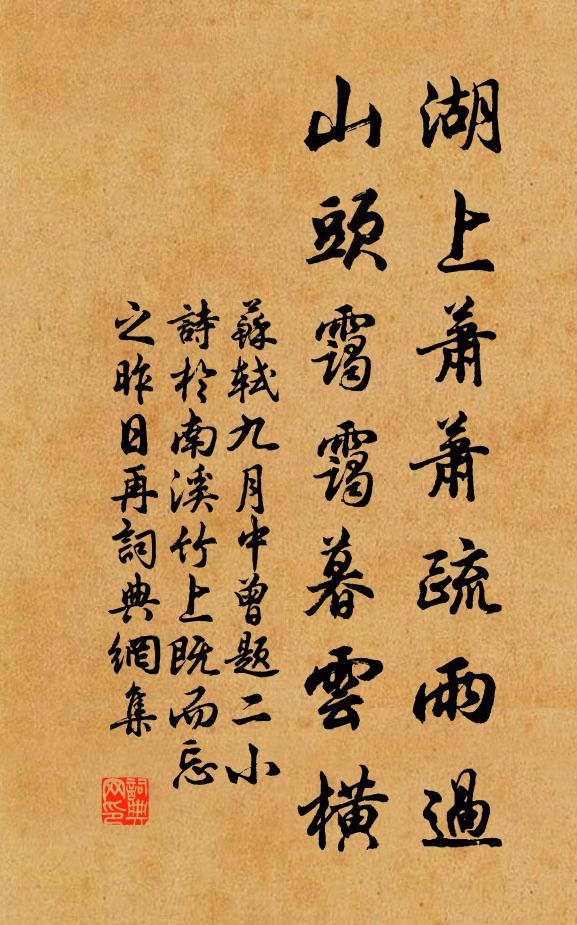 湖上蕭蕭疏雨過
山頭靄靄暮雲橫
蘇軾九月中曾題二小
詩於南溪竹上既而忘
之昨日再詞典網集
詞典
网印